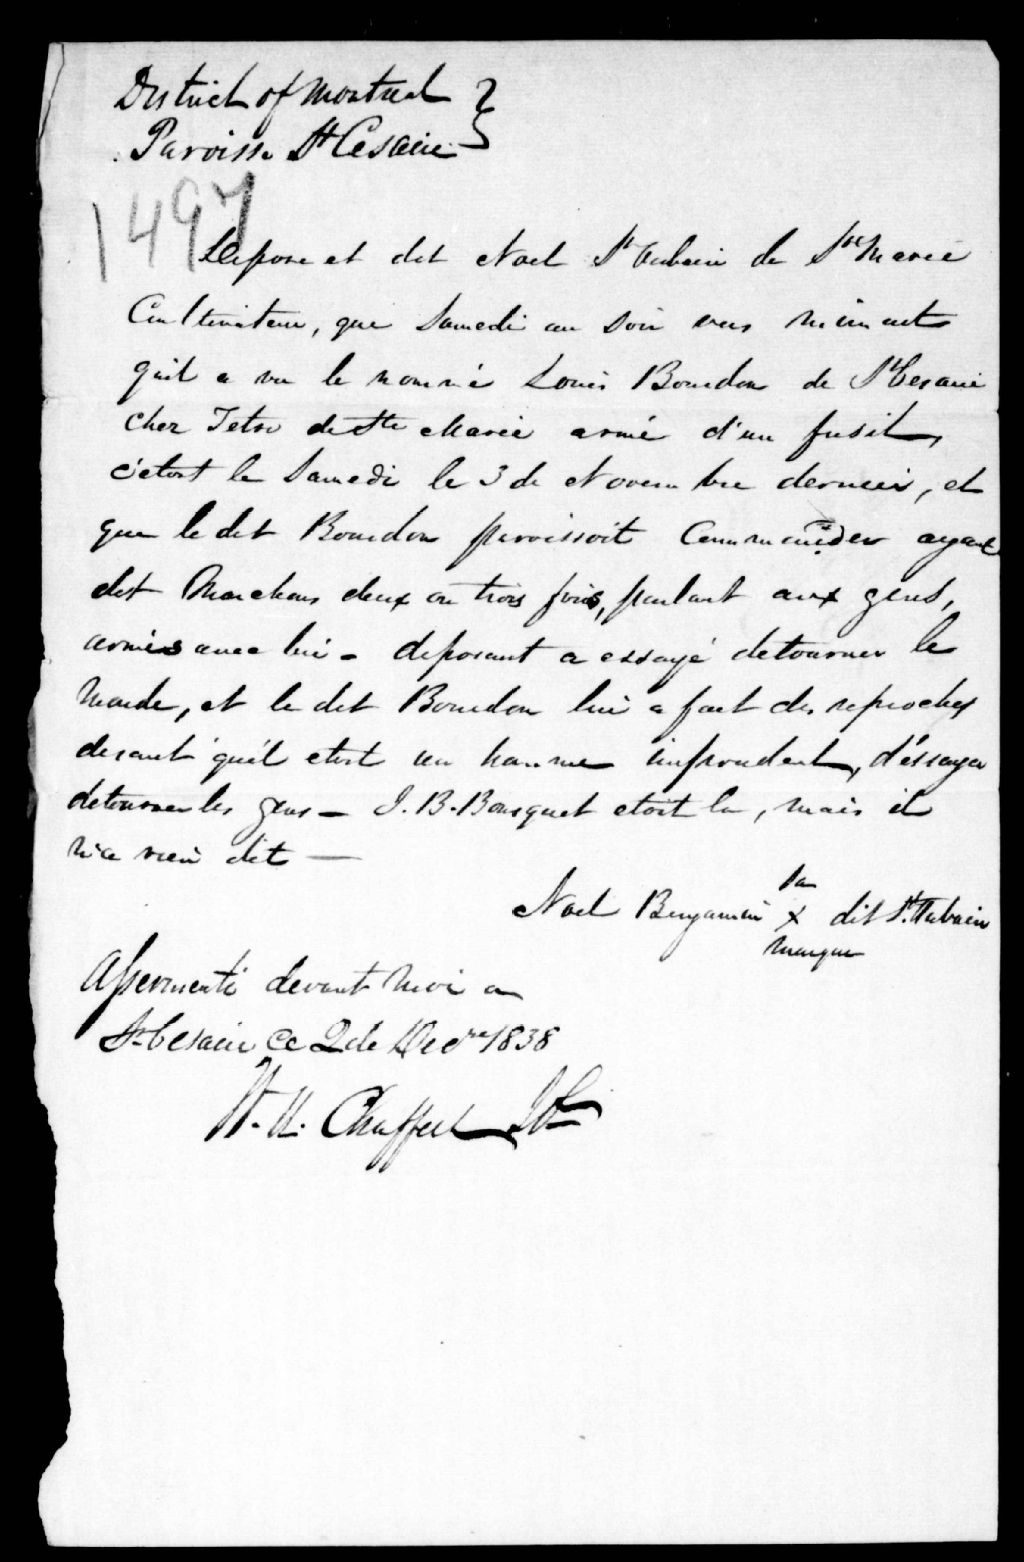 District of Montreal }
Paroisse St Cesaire }
1497
Depose et dit Noel St Aubain de Ste Marie
Cultivateur, que Samedi au soir vers minuit
quil a vu le nommé Louis Bourdon de St Cesaire
chez Tetro de Ste Marie armé d'un fusil,
c'etoit le Samedi le 3 de Novembre dernier, et
que le dit Bourdon paroissoit Commander ayant
dit Marchons deux ou trois fois, parlant aux gens,
armés avec lui - deposant a essayé detourner le
monde, et le dit Bourdon lui a fait des reproches
disant qu'il etoit un homme imprudent, d'éssayer
detourner les gens - J. B. Bousquet etoit la, mais il
n'a rien dit —
Noel Benjamin sa x marque dit St. Aubain
Assermenté devant moi a
St Cesaire ce 2 de Decre 1838
W. U. Chaffeel JP